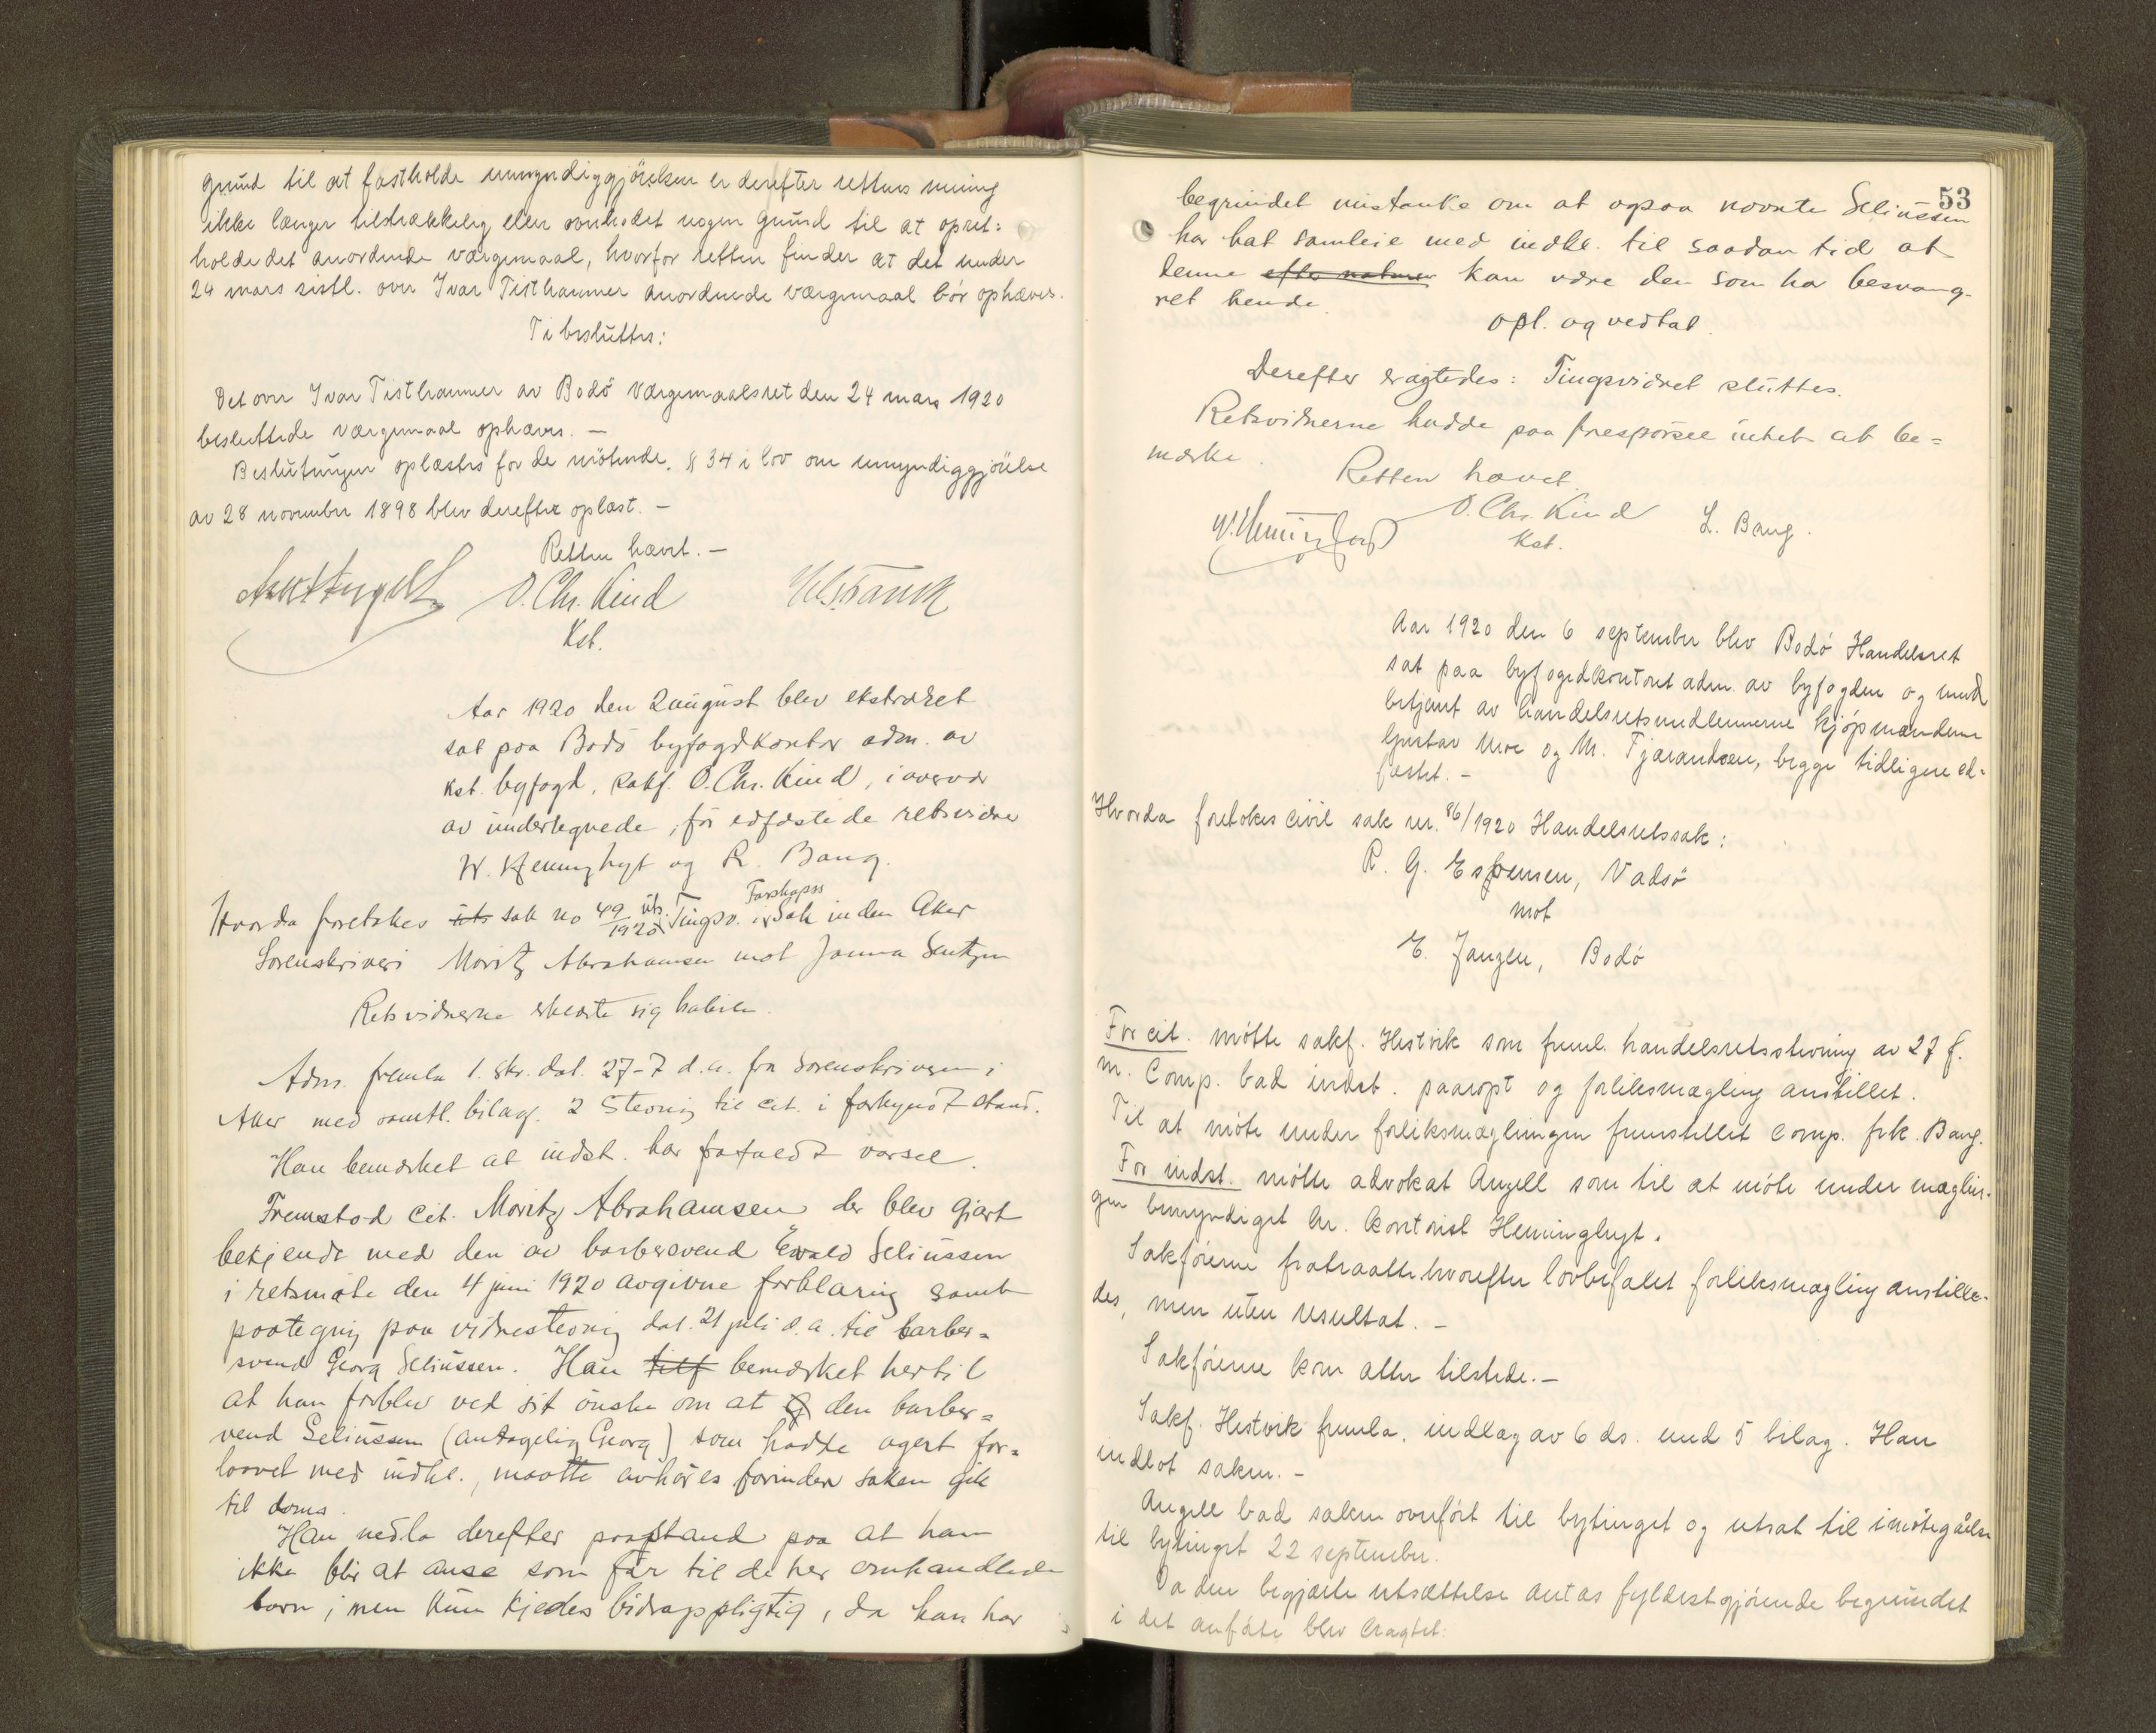 grund til at fastholde umyndiggjørelsen er derefter rettens mening
ikke længer tilstrækkelig eller ovnhodet nogen grund til at opret:
holde det anordnede værgemaal, hvorfor retten finder at det under
24 mars sistl. over Ivar Tisthammer anordnede værgemaal bör ophæves.
Ti besluttes:
Det over Ivar Tisthammer av Bodö Værgemaalsret den 24 mars 1920
besluttede værgemaal ophæves. —
Beslutningen oplæstes for de mötende. § 34 i lov om umyndiggjörelse
av 28 november 1898 blev derefter oplæst. —
Retten hævet. —
O. Chr. Kind
Kst.
Aar 1920 den 2 august blev ekstraret
sat paa Bodö byfogdkontor adm. av
kst. byfogd, sakf. O. Chr. Kind, i overvær
av undertegnede, för edfæstede retsvidner
W. Heminghyt og R. Bang.
Hvorda foretokes uts sak no 49/1920 uts. Tingsv. i Farskapss Sak inden Aker
Sorenskriveri Moritz Abrahamsen mot Janna Sentzen
Retsvidnerne erklærte sig habile.
Adm. fremla 1. skr. dat. 27-7 d.a. fra Sorenskriveren i
Aker med samtl. bilag. 2 Stevning til cit. i forkyndt stand.
Han bemærket at indst. har frafaldt varsel.
Fremstod Cit. Moritz Abrahamsen der blev gjort
bekjendt med den av barbersvend Ewald Seliussen
i retsmøte den 4 juni 1920 avgivne forklaring samt
paategning paa vidnestevning dat. 21 juli d.a. til barber=
svend Georg Seliussen. Han tilf bemærket hertil
at han forblev ved sit ønske om at G den barber=
vend Seliussen (antagelig Georg) som hadde agert for=
lovet med indkl., maatte avhøres forinden saken gik
til doms.
Han nedla derefter paastand paa at han
ikke blir at anse som far til det her omhandlede
barn, men kun kjendes bidragspligtig, da han har
53
begrundet mistanke om at ogsaa nævnte Seliussen
har hat samleie med indkl. til saadan tid at
denne efter naturen kan være den som har besvang-
ret hende.
Opl. og vedtat.
Derefter eragtedes: Tingsvidnet sluttes.
Retsvidnerne hadde paa forespørsel intet at be=
mærke.
Retten hævet.
O. Chr. Kind
Kst.
L. Bang.
Aar 1920 den 6 september blev Bodö Handelsret
sat paa byfogedkontoret adm. av byfogden og med
betjent av handelsretsmedlemmerne kjøpmændene
Gustav Moe og M. Tjærandsen, begge tidligere ed=
fæstet. —
Hvorda foretokes civil sak nr. 86/1920 Handelsretssak:
R. G. Espensen, Vadsö
mot
E. Janzen, Bodö
For cit. mötte sakf. Hestvik som freml. handelsretsstevning av 27 f.
m. Comp. bad indst. paaropt og forliksmægling anstillet.
Til at möte under forliksmæglingen fremstillet comp. frk. Bang.
For indst. mötte advokat Angell som til at möte under mæglin-
gen bemyndiget hr. kontorist Heminghyt.
Sakförerne fratraatte hvorefter lovbefalet forliksmægling anstille-
des, men uten resultat. —
Sakförerne kom atter tilstede. —
Sakf. Hestvik fremla. indlæg av 6 ds. med 5 bilag. Han
indlot saken. —
Angell bad saken overfört til bytinget og utsat til imötegåelse
til bytinget 22 september.
Da den begjærte utsættelse antas fyldestgjörende begrundet
i det anförte blev eragtet: